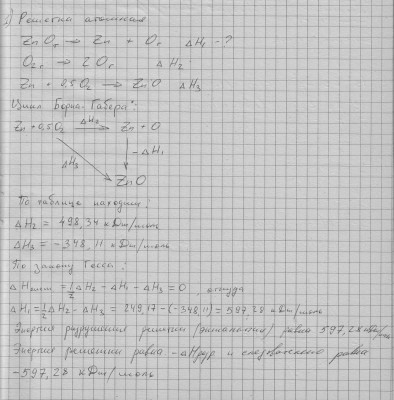 1) Решетка атомная
ZnOт → Zn + Oг ΔH1 - ?
O2г → 2Oг ΔH2
Zn + 0,5O2 → ZnO ΔH3
Цикл Борна-Габера:
Zn + 0,5O2 ΔH2 → Zn + O
ΔH3 -ΔH1
ZnO
По таблице находим:
ΔH2 = 498,34 кДж/моль
ΔH3 = -348,11 кДж/моль
По закону Гесса:
= 1/2 ΔH2 - ΔH1 - ΔH3 = 0, откуда
ΔH1 = 1/2 ΔH2 - ΔH3 = 249,17 - (-348,11) = 597,28 кДж/моль
Энергия разрушения решетки равна 597,28 кДж/моль
Энергия решетки равна -ΔHразр и следовательно равна
-597,28 кДж/моль